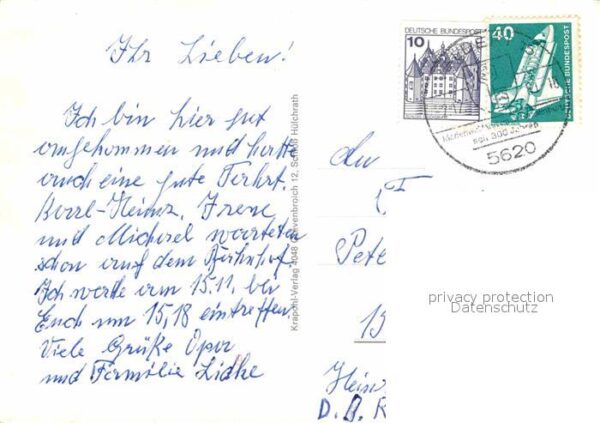 Ihr Lieben!
Ich bin hier gut
angekommen und hatte
auch eine gute Fahrt.
Karl-Heinz, Irene
und Michael warteten
schon auf dem Bahnhof.
Ich werde am 15.11. bei
Euch um 15,18 eintreffen.
Viele Grüße Opa
und Familie Lidke
Krapohl-Verlag 4048 Grevenbroich 12, Schloß Hülchrath
DEUTSCHE BUNDESPOST
10
40
DEUTSCHE BUNDESPOST
seit 300 Jahren
5620
An
Pete
1
Hein
D.B.R
privacy protection
Datenschutz